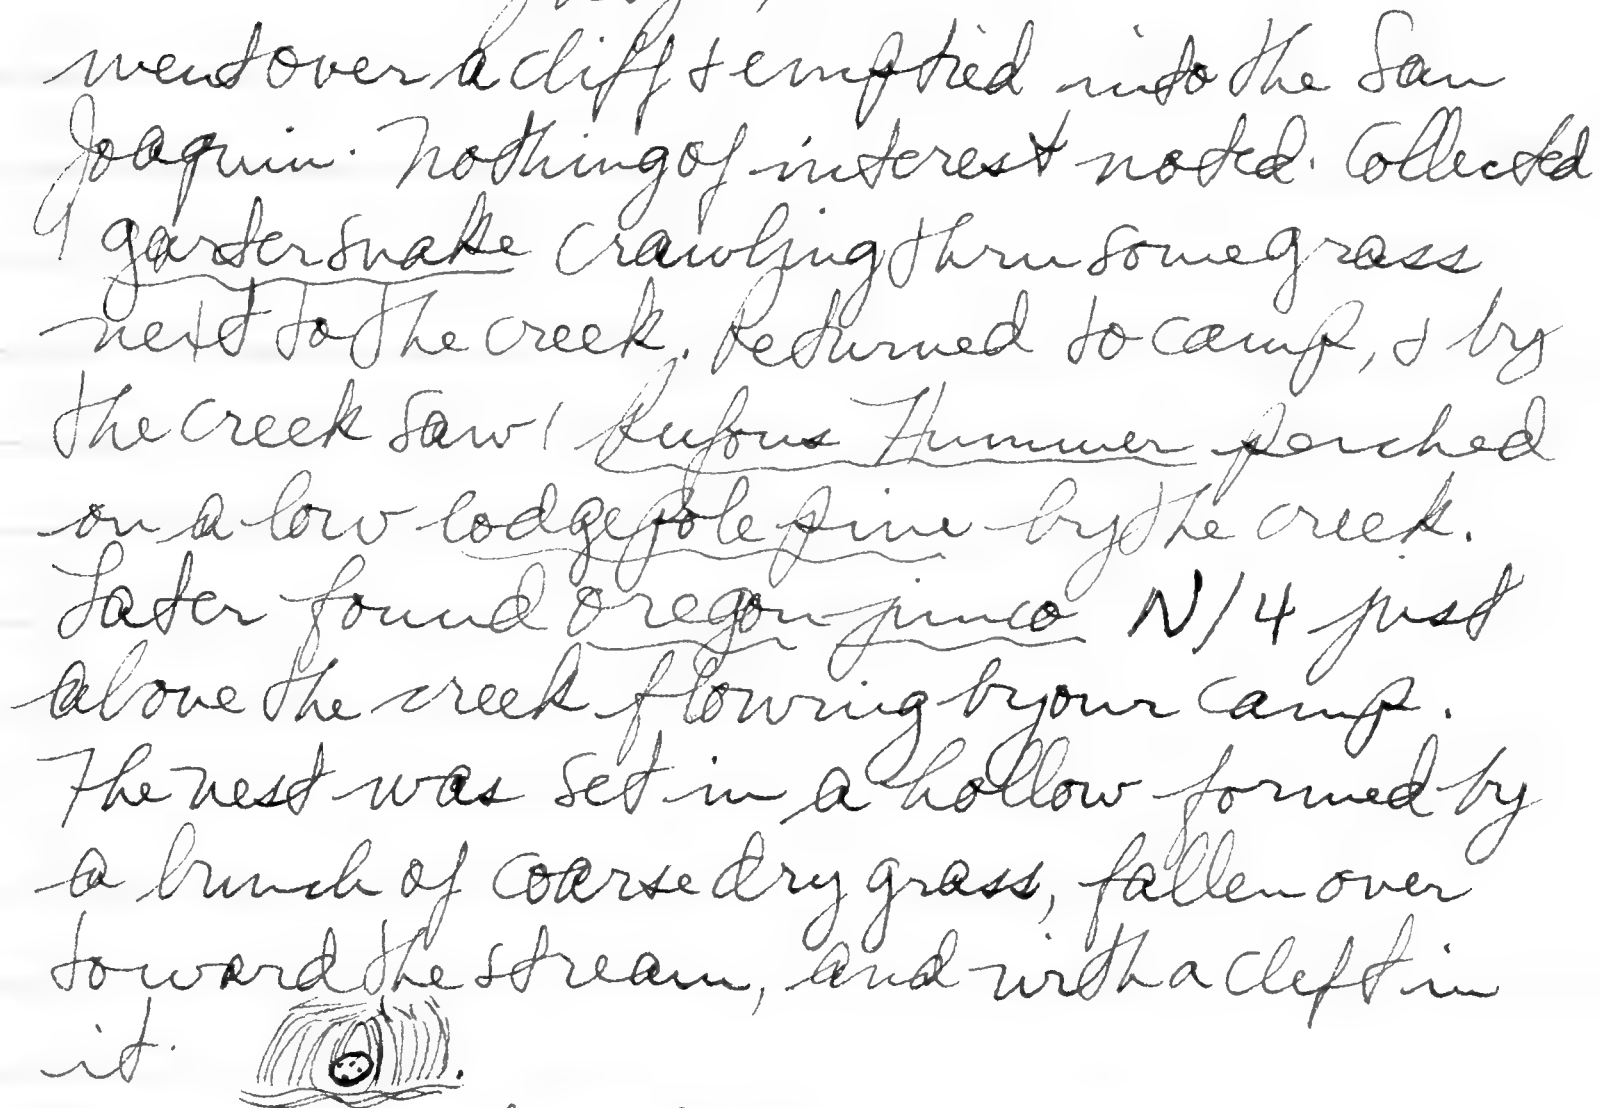 went over a cliff & emptied into the San
Joaquin. Nothing of interest noted. Collected
garter snake crawling thru some grass
next to the creek. Returned to camp, & by
the creek saw 1 Rufous Hummer perched
on a low lodgepole pine by the creek.
Later found oregon junco N/4 just
above the creek flowing by our camp.
The nest was set in a hollow formed by
a bunch of coarse dry grass, fallen over
toward the stream, and with a cleft in
it.